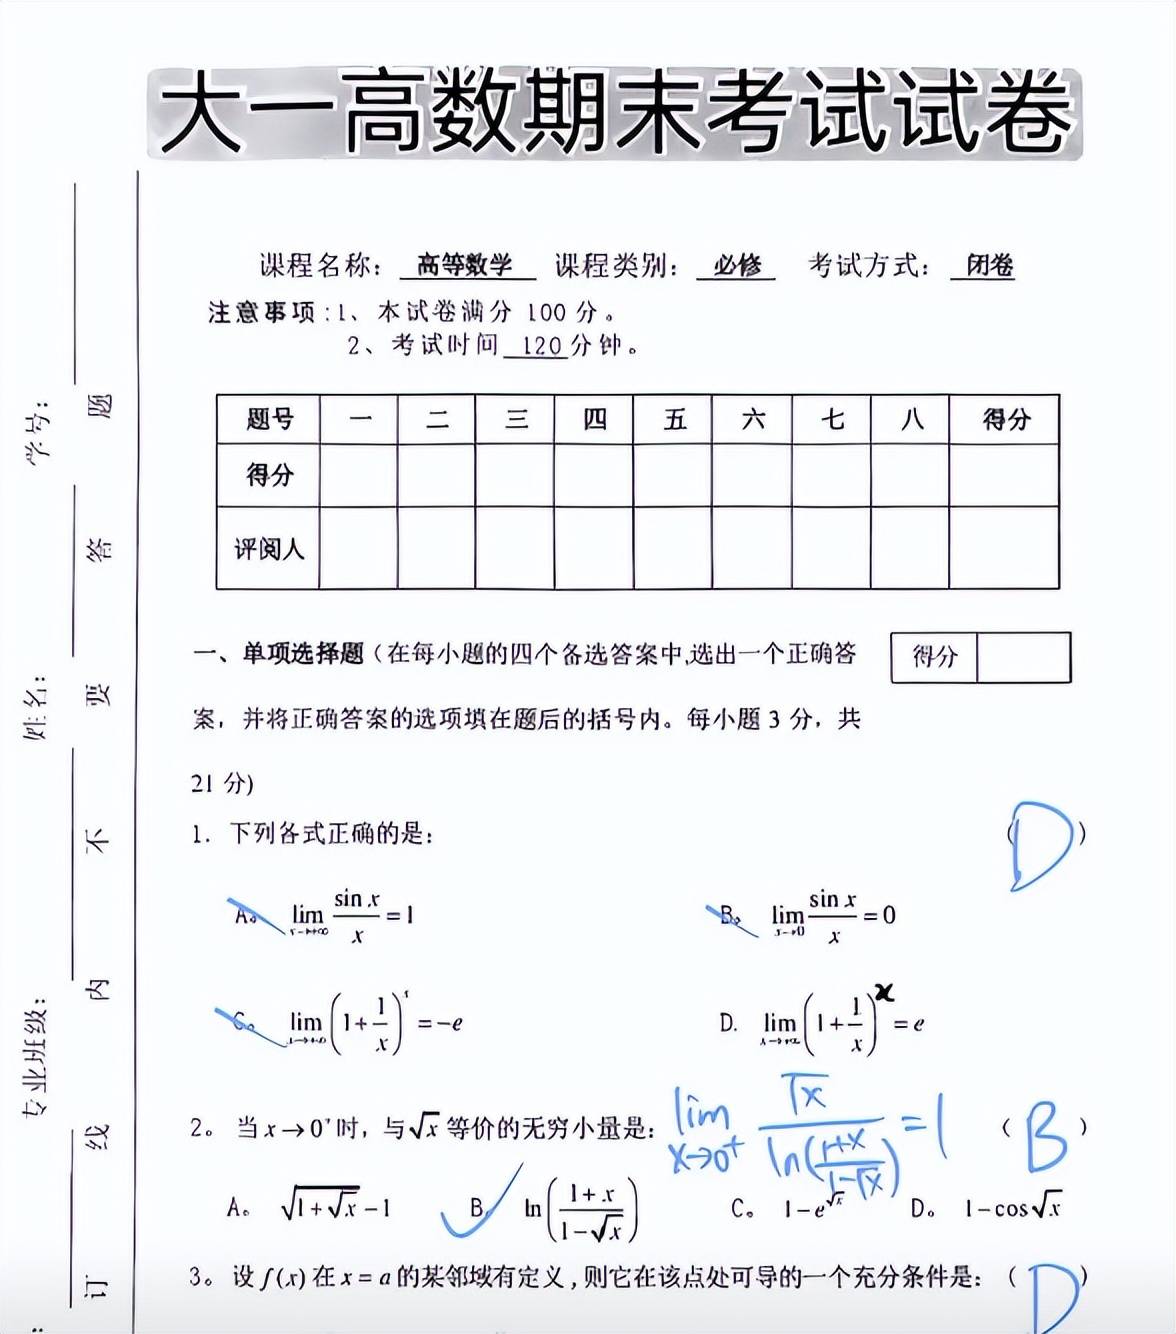 大一高数期末考试试卷
课程名称： 高等数学 课程类别： 必修 考试方式： 闭卷
注意事项:1、本试卷满分 100 分。
2、考试时间 120 分钟。
题号 一 二 三 四 五 六 七 八 得分
得分
评阅人
一、单项选择题（在每小题的四个备选答案中,选出一个正确答
得分
案，并将正确答案的选项填在题后的括号内。每小题 3 分，共
21 分)
1. 下列各式正确的是： （D）
A。 lim x→+∞ sin x / x = 1 B。 lim x→0 sin x / x = 0
C。 lim x→+∞ (1 + 1/x)^x = −e D. lim x→+∞ (1 + 1/x)^x = e
2。 当 x → 0⁺ 时，与 √x 等价的无穷小量是： （B）
lim x→0⁺ √x / ln((1+x)/(1−√x)) = 1
A。 √(1+√x) − 1 B. ln((1+x)/(1−√x)) C。 1 − e^√x D。 1 − cos √x
3。 设 f(x) 在 x = a 的某邻域有定义，则它在该点处可导的一个充分条件是：（D）
学号：
姓名：
专业班级：
题
答
要
不
内
线
订